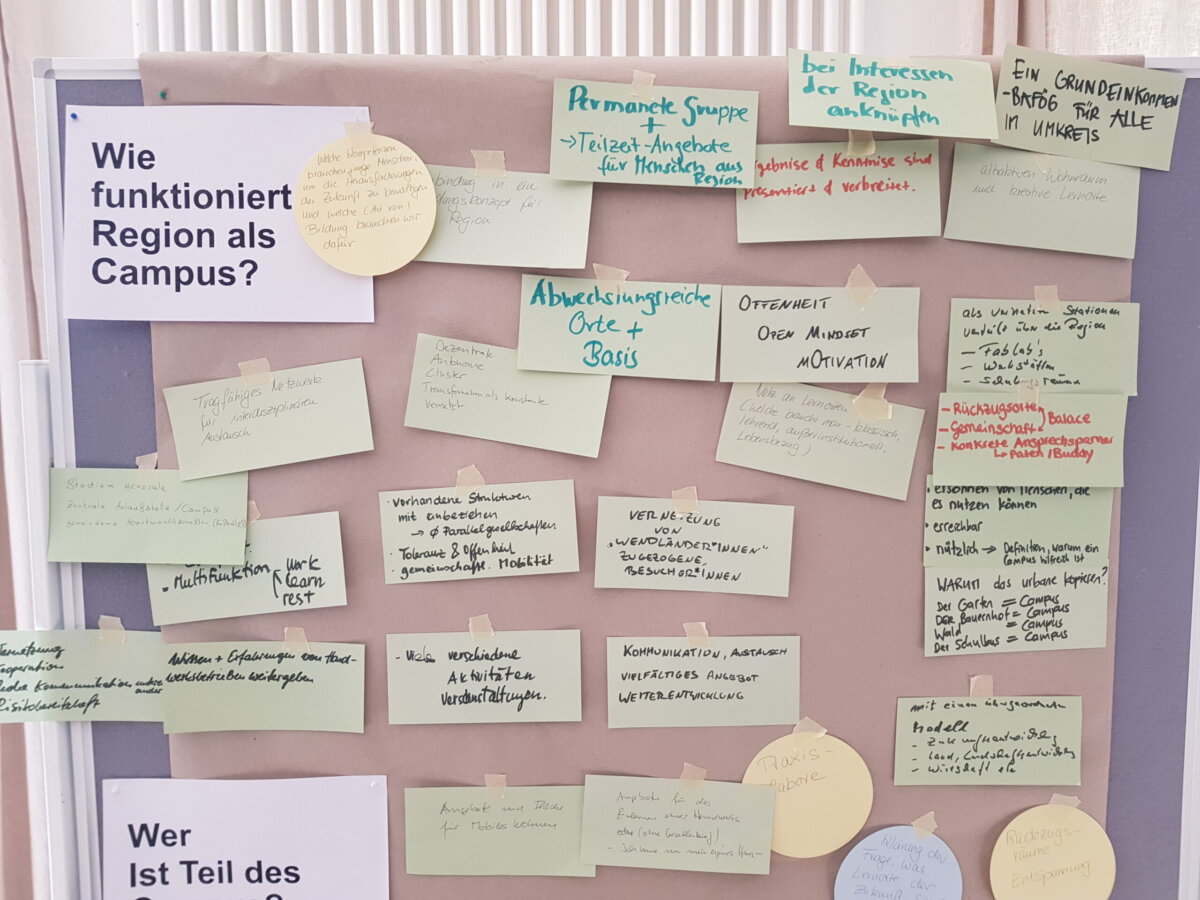 Wie
funktioniert
Region als
Campus?
Welche Kompetenzen
brauchen junge Menschen
um die Herausforderungen
der Zukunft zu bewältigen
und welche (Art von)
Bildung brauchen wir
dafür
bindung in ein
dungskonzept für
Region
Permanete Gruppe
+
→ Teilzeit-Angebote
für Menschen aus
Region
bei Interessen
der Region
anknüpfen
gebnise & Kenntnise sind
präsentiert & verbreitet.
EIN GRUNDEINKOMMEN
- BAFÖG FÜR ALLE
IM UMKREIS
alternativen Wohnraum
und kreative Lernorte
Abwechslungsreiche
Orte +
Basis
OFFENHEIT
OPEN MINDSET
MOTIVATION
als Stationen
verteilt über die Region
- FabLab's
- Werkstätten
Tragfähiges Netzwerk
für interdisziplinären
Austausch
Dezentrale
Autonome
Cluster
Transformation als konstante
vernetzt
Viele an Lernorten
(welche braucht man - klassisch,
lehrend, außerinstitutionell,
Lebensbezug)
- Rückzugsorte
- Gemeinschaft
Balace
- Konkrete Ansprechspartner
↳ Paten / Buddy
Studium Generale
Zentrale Anlaufstelle / Campus
- Multifunktion
work
learn
rest
· vorhandene Strukturen
mit einbeziehen
→ Ø Parallelgesellschaften
· Toleranz & Offenheit
· gemeinschaftl. Mobilität
VERNETZUNG
VON
„WENDLÄNDER*INNEN"
ZUGEZOGENE,
BESUCHER*INNEN
· ersonnen von Menschen, die
es nutzen können
· erreichbar
· nützlich → Definition, warum ein
Campus hilfreich ist
WARUM das urbane kopieren?
Der Garten = Campus
DER Bauernhof = Campus
Wald = Campus
Der Schulbus = Campus
ernetzung
ooperation
Kommunikation
Risikobereitschaft
Wissen + Erfahrungen von Hand-
werksbetrieben weitergeben
- Viele verschiedene
Aktivitäten
Veranstaltungen.
KOMMUNIKATION, AUSTAUSCH
VIELFÄLTIGES ANGEBOT
WEITERENTWICKLUNG
mit einem übergeordneten
Modell
- Zukunftsentwicklung
- Land, Landschaftsentwicklung
- Wirtschaft etc
Angebote und
für Mobiles Wohnen
Angebote für das
Erlernen eines Handwerks
Praxis-
labore
Klärung der
Frage, was
Lernorte der
Zukunft
Rückzugs-
räume
Entspannung
Wer
Ist Teil des